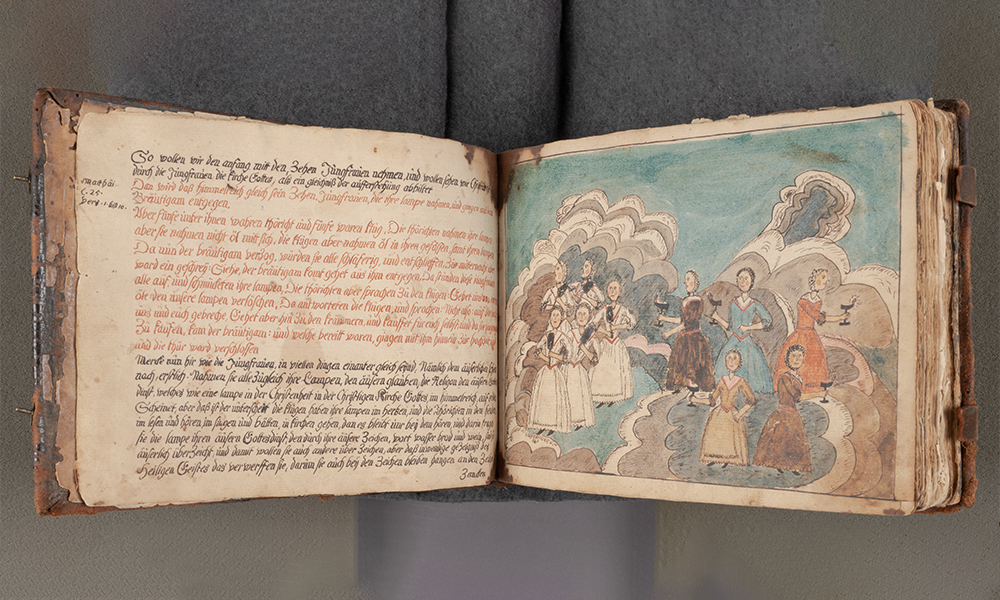 So wollen wir den anfang mitt den Zehen Jungfrauen nehmen, und wollen sehen wie Christus
durch die Jungfrauen die kirche Gottes, als ein gleichniß der aufersthehung abbilter
Matthäi
C. 25.
Dan wird daß himmelreich gleich sein Zehen Jungfrauen, die ihre lampe nahmen, und gingen aus
Bräutigam entgegen,
Aber fünfe unter ihnen wahren thöricht und fünfe waren klug, Die thörichten nahmen ihre lampen
aber sie nahmen nicht öl mitt sich, die klügen aber nahmen öl in ihren gefässen, samt ihren lampen
Da nun der bräutigam verzog, würden sie alle schläferig, und entschlieffen, Zur mitternacht aber
ward ein geschreÿ Siehe, der bräutigam komt gehet aus ihm entgegen, Da stunden diese Jungfrauen
alle auf und schmückten ihre lampen, Die thörichten aber sprachen Zu den klügen: Gebet uns von
öle den unsere lampen verlöschen, Da antworteten die klügen, und sprachen: Nicht also: auf daß nicht
uns und euch gebreche. Gehet aber hin Zu den krämmern, und kauffet für euch selbst, und da sie gingen
Zu kaufen, kam der bräutigam: und welche bereitt waren, gingen mitt ihm hinein Zur hochzeit
und die thür ward verschlossen
Mercke nun hir wie die Jungfrauen, in vielen dingen einanter gleich seind, Nämlich den äuserlichen
nach, erstlich Nahmen sie alle Zugleich ihre Lampen, den äusern glauben, die Religon den äusern Gottes
dinst, welches wie eine lampe in der Christenheit in der Christligen Kirche Gottes im himmelreich, auf
Scheinet, aber daß ist der unterscheit die klügen haben ihre lampen im hertzen, und die thörichten in den
im lesen und hören im sagen und bätten, in kirchen gehen, dan es bleibt ime beÿ den hören und darin
sie die lampe ihren äusern Gottesdinst, den durch ihre äusere Zeichen, wort waser brod und wein,
äuserlich
Heiligen Geistes das verwerffen sie, darum sie auch beÿ den Zeichen bleiben hangen, an den
Zanden